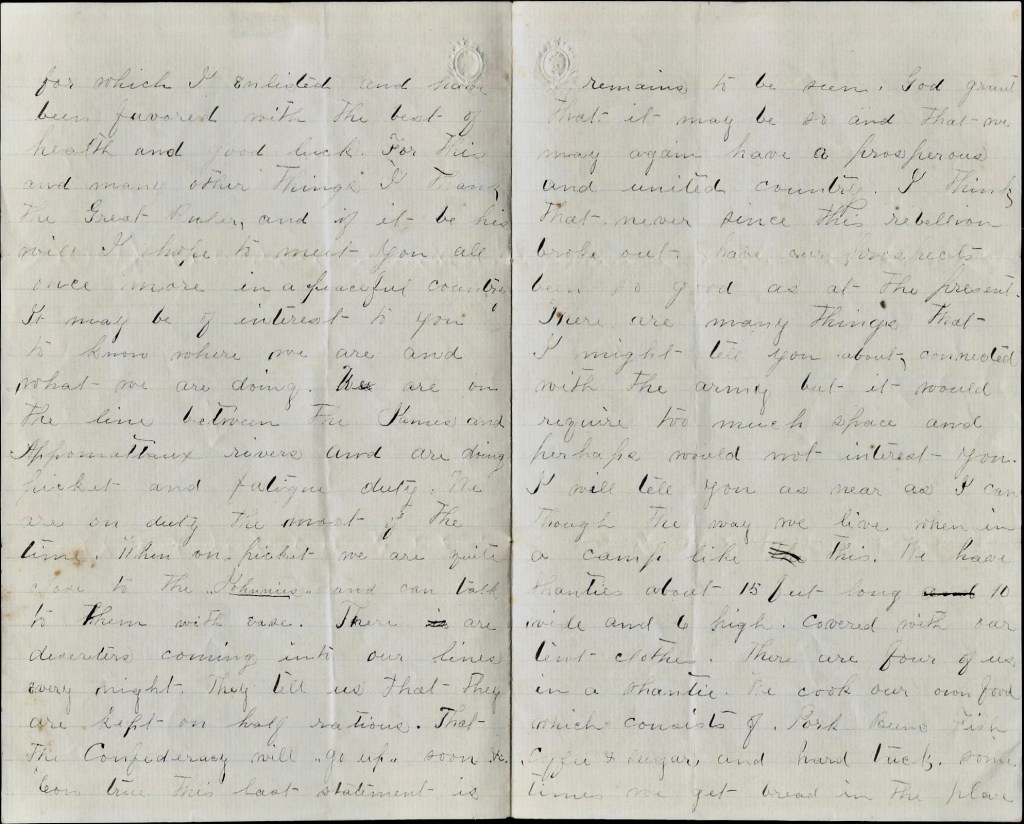 for which I enlisted and have
been favored with the best of
health and good luck. For this
and many other things I thank
the Great Ruler, and if it be his
will I hope to meet you all
once more in a peaceful country
It may be of interest to you
to know where we are and
what we are doing. We are on
the line between the James and
Appomattaux rivers and are doing
picket and fatigue duty. We
are on duty the most of the
time. When on picket we are quite
close to the "Johnnies" and can talk
to them with ease. There are
deserters coming into our lines
every night. They tell us that they
are kept on half rations. That
the Confederacy will "go up" soon &c.
How true this last statement is
remains to be seen. God grant
that it may be so and that we
may again have a prosperous
and united country. I think
that never since this rebellion
broke out have our prospects
been so good as at the present.
There are many things that
I might tell you about, connected
with the army but it would
require too much space and
perhaps would not interest you.
I will tell you as near as I can
though the way we live when in
a camp like this. We have
shanties about 15 feet long 10
wide and 6 high. Covered with our
tent clothe. There are four of us
in a shantie. We cook our own food
which consists of Pork Beans Fish
Coffee & Sugar, and hard tack. some
times we get bread in the place